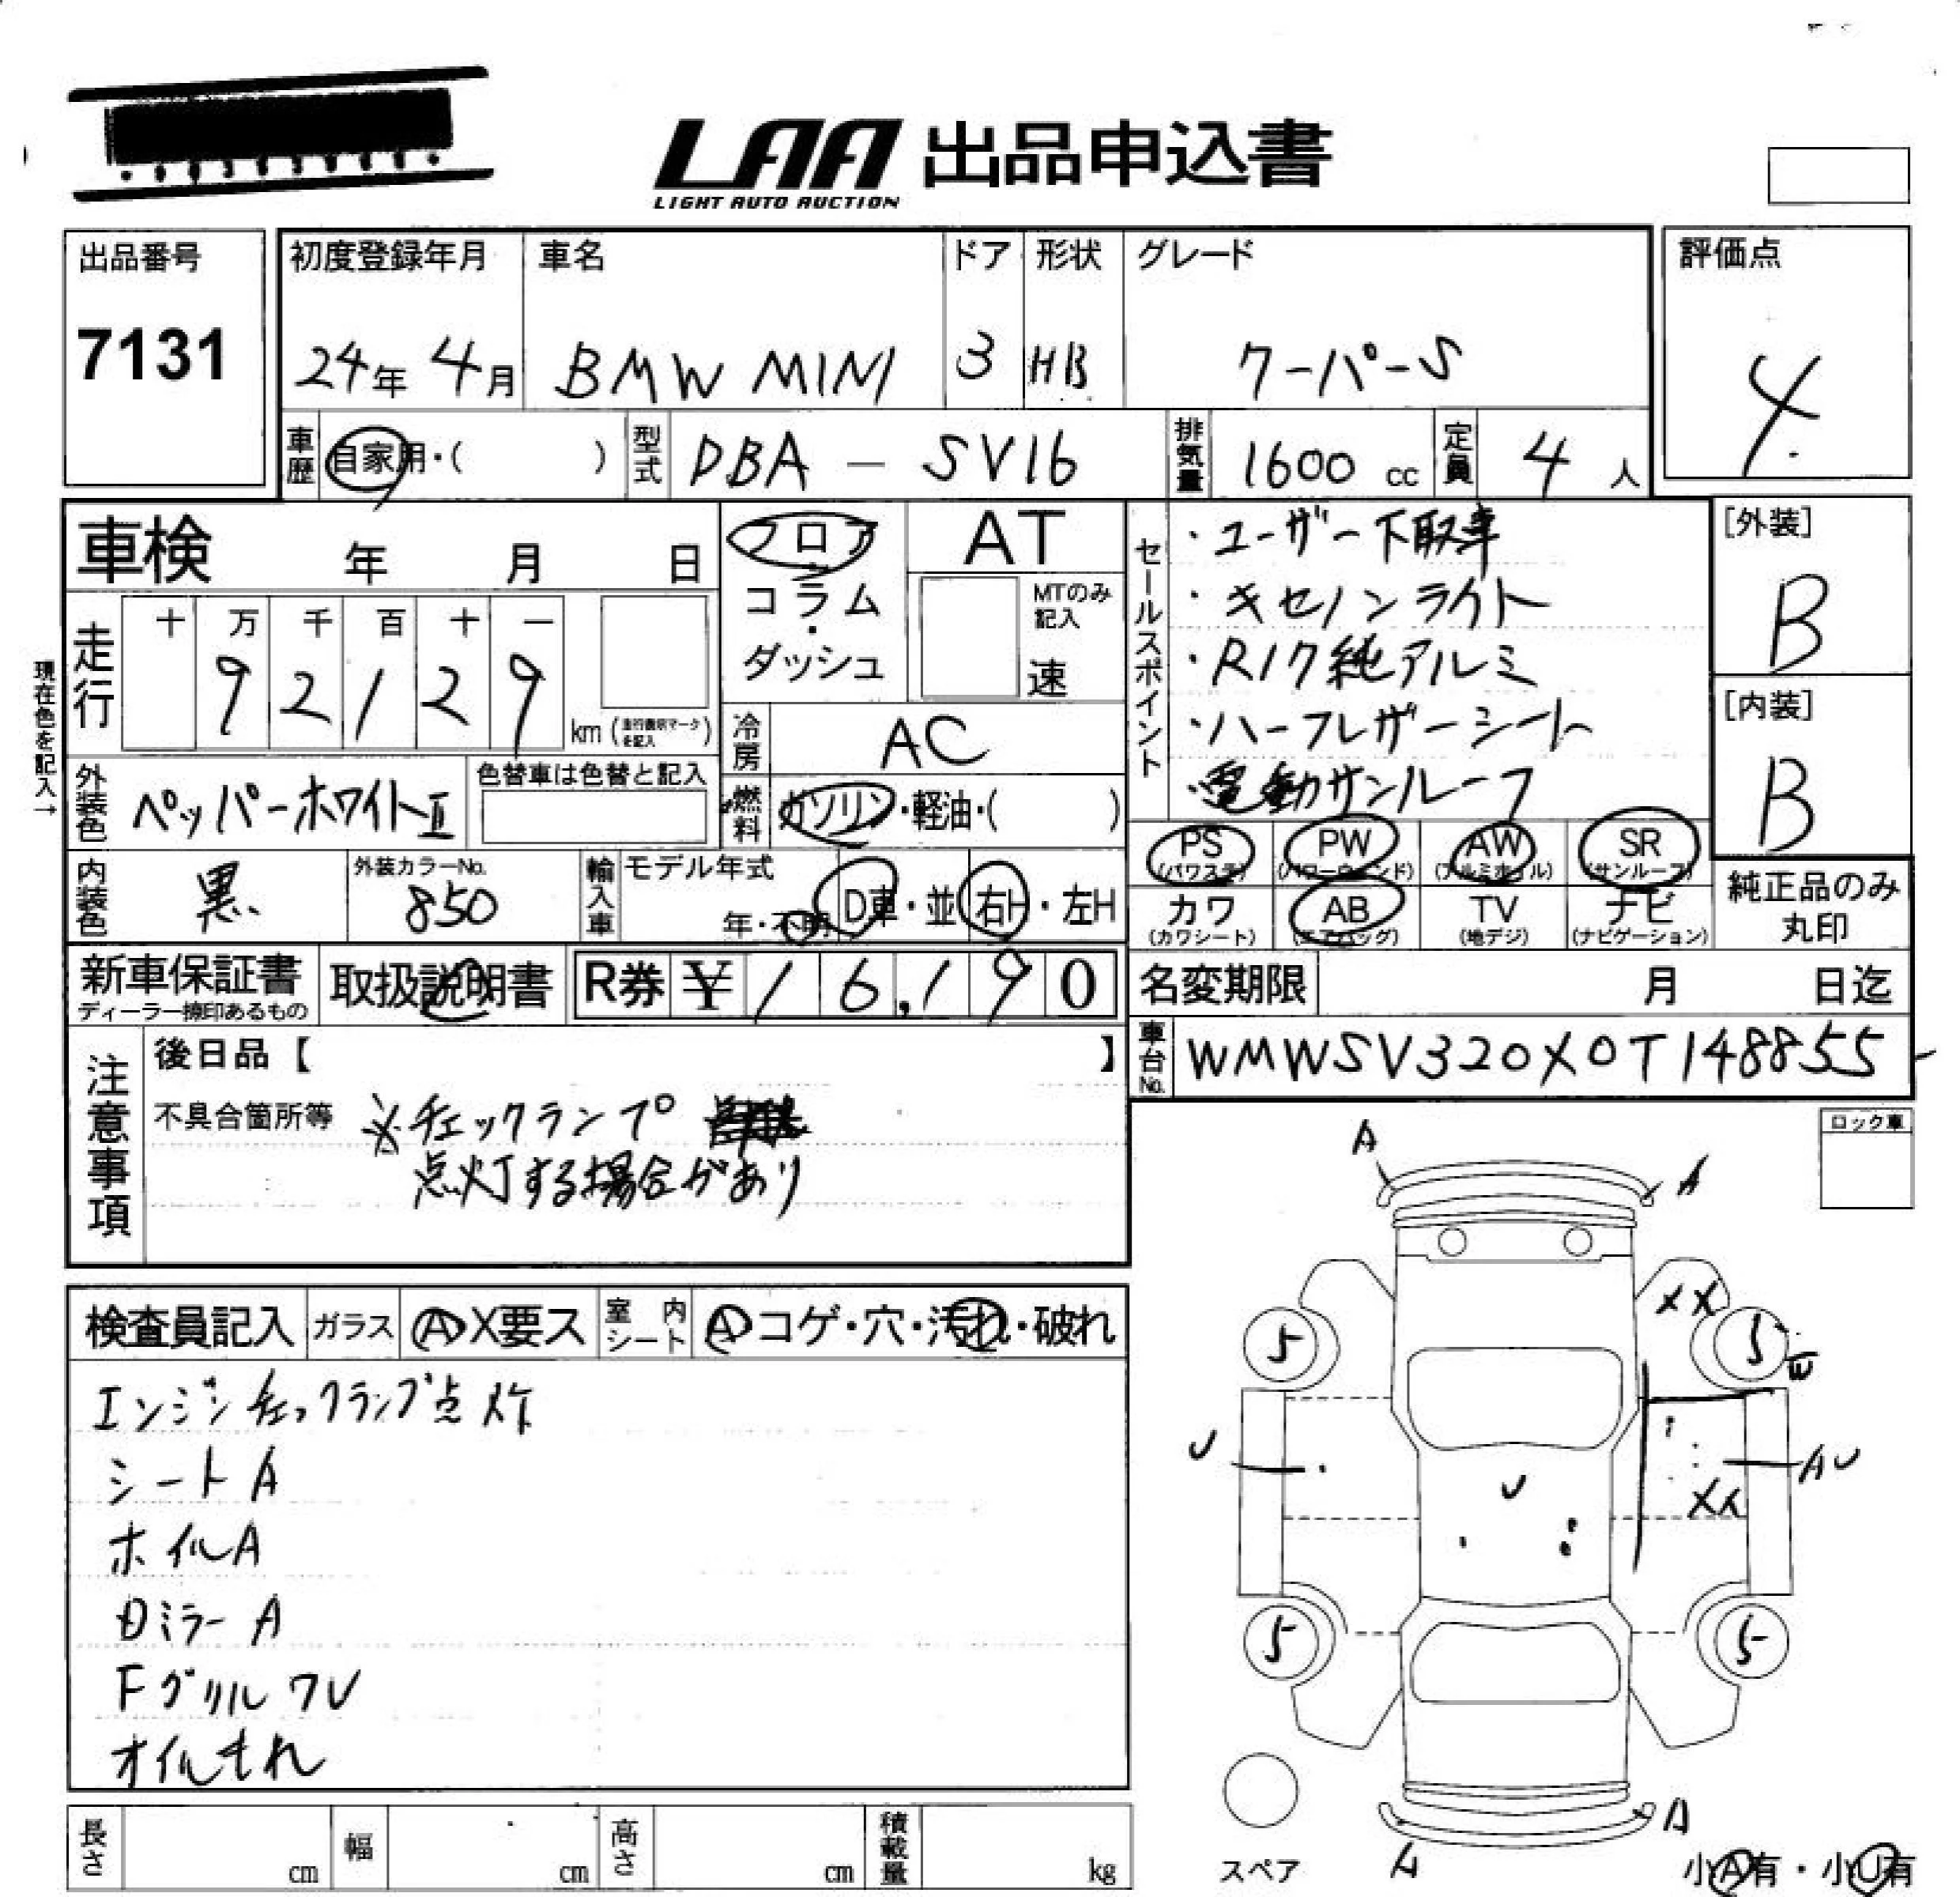 LAA 出品申込書
LIGHT AUTO AUCTION
出品番号
7131
初度登録年月 車名 ドア 形状 グレード
24年 4月 BMW MINI 3 HB クーパーS
評価点
4
車歴 自家用・( ) 型式 DBA - SV16 排気量 1600 cc 定員 4 人
車検 年 月 日
フロア
コラム
・
ダッシュ
AT
MTのみ
記入
速
走行 十 万 千 百 十 一
9 2 1 2 9
km (走行表示マークを記入)
現在色を記入→
冷房 AC
燃料 ガソリン・軽油・( )
外装色 ペッパーホワイトII
色替車は色替と記入
内装色 黒
外装カラーNo.
850
輸入車 モデル年式
年・不明 D車・並 右H・左H
セールスポイント
・ユーザー下取車
・キセノンライト
・R17純アルミ
・ハーフレザーシート
・電動サンルーフ
[外装]
B
[内装]
B
PS (パワステ) PW (パワーウィンド) AW (アルミホイル) SR (サンルーフ)
カワ (カワシート) AB (エアバッグ) TV (地デジ) ナビ (ナビゲーション)
純正品のみ
丸印
新車保証書
ディーラー捺印あるもの
取扱説明書
R券 ¥ 16,190
名変期限 月 日迄
車台No. WMWSV320X0T148855
注意事項
後日品【 】
不具合箇所等 ※チェックランプ
点灯する場合があり
ロック車
検査員記入 ガラス A X要ス 室内シート A コゲ・穴・汚れ・破れ
エンジンチェックランプ点灯
シートA
ホイルA
DミラーA
Fグリル ワレ
オイルもれ
A A
XX
5 5
U
U
AU
XX
5 5
A
A
スペア
小A有・小U有
長さ cm 幅 cm 高さ cm 積載量 kg